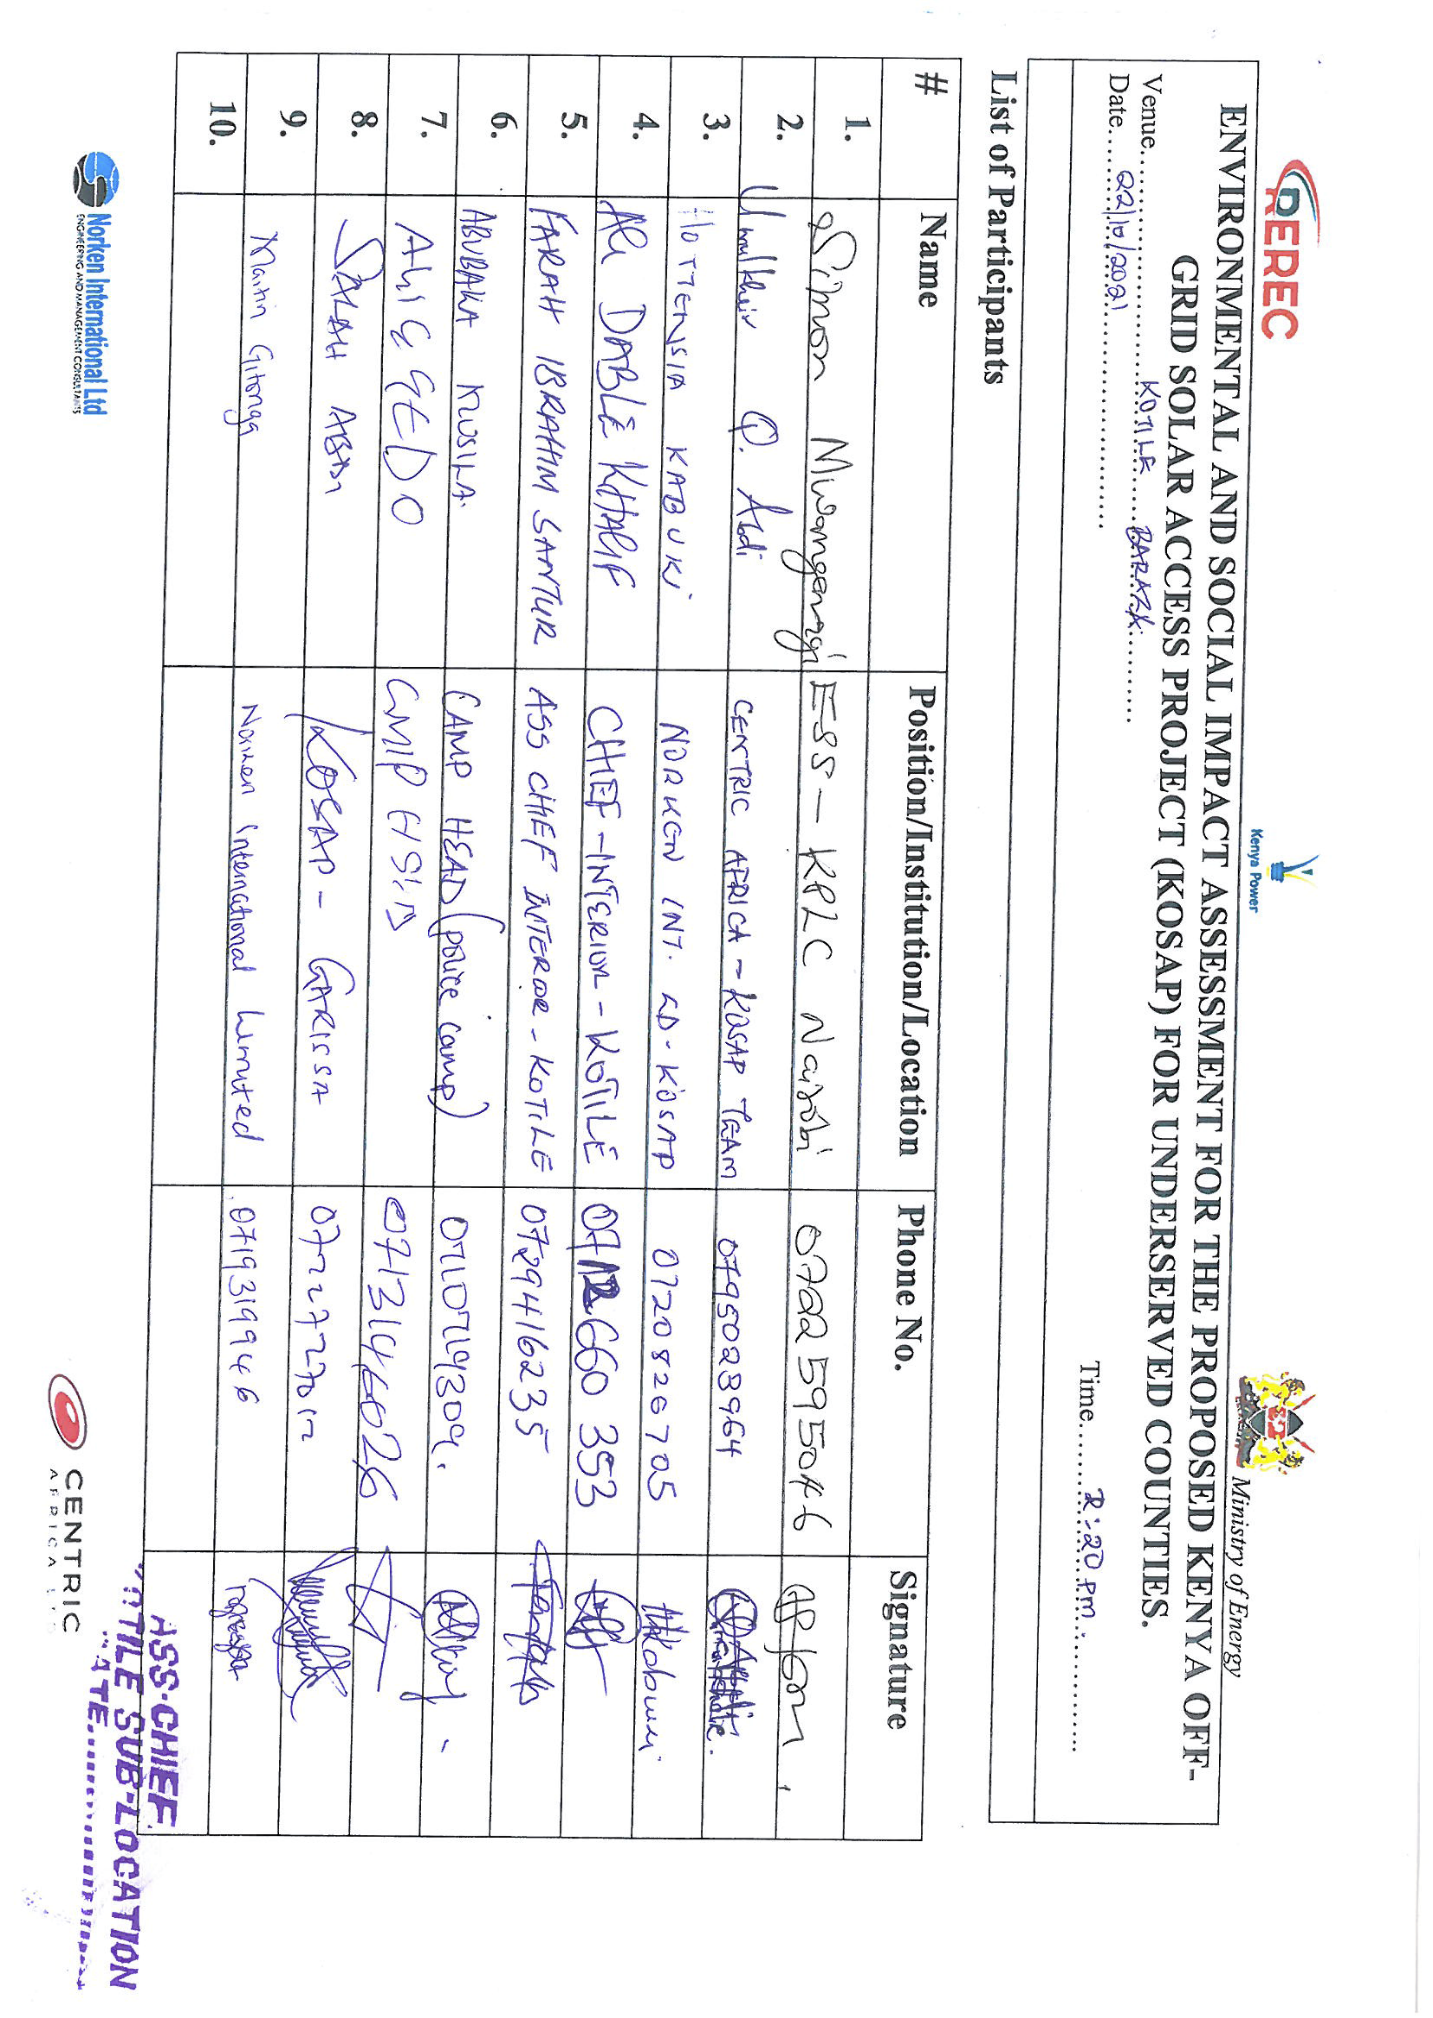 REREC
Kenya Power
Ministry of Energy
ENVIRONMENTAL AND SOCIAL IMPACT ASSESSMENT FOR THE PROPOSED KENYA OFF-
GRID SOLAR ACCESS PROJECT (KOSAP) FOR UNDERSERVED COUNTIES.
Venue........KOTILE.....BARAZA..........
Date.....22/10/2021.............. Time......2:20 pm...........
List of Participants
# Name Position/Institution/Location Phone No. Signature
1. Simon Mwangangi ESS - KPLC Nairobi 0722595046
2. Umulkheir Q. Abdi CENTRIC AFRICA - KOSAP TEAM 0795023964
3. HOTTENSIA KABUKI NORKEN INT. LD - KOSAP 0720826705 HKabuki
4. Ali DABLE KHALIF CHIEF - INTERIOR - KOTILE 0712660 353
5. FARAH IBRAHIM SANTUR ASS CHEF INTERIOR - KOTILE 0729416235
6. ABUBAKA KUSILA. CAMP HEAD (police camp) 0710719309.
7. GEDO 0713146026
8. SALAH ABDI KOSAP - GARISSA 0722727012
9. Martin Gitonga Norken International Limited 0719319946
10.
Norken International Ltd
ENGINEERING AND MANAGEMENT CONSULTANTS
CENTRIC
AFRICA
ASS-CHIEF
SUB-LOCATION